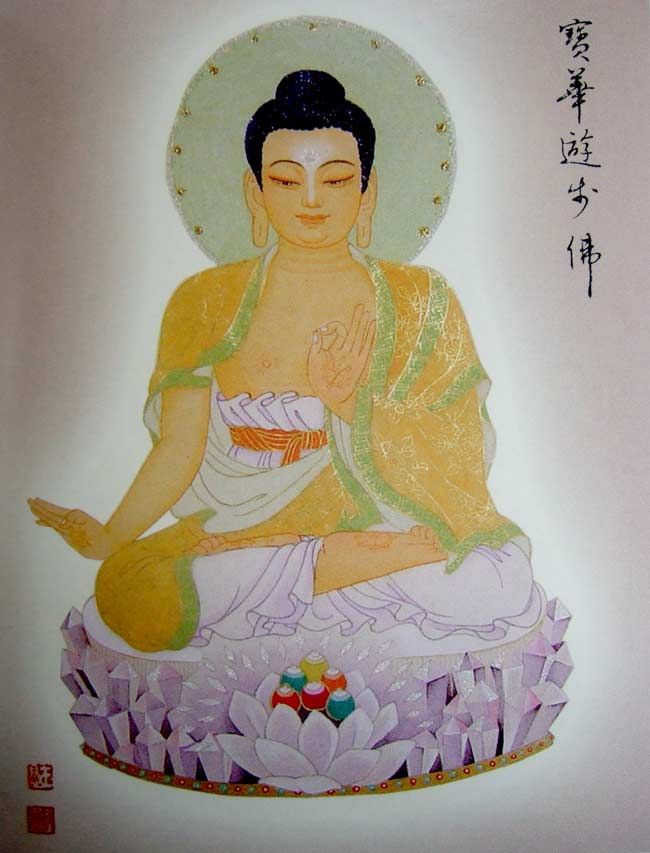 寶華遊步佛